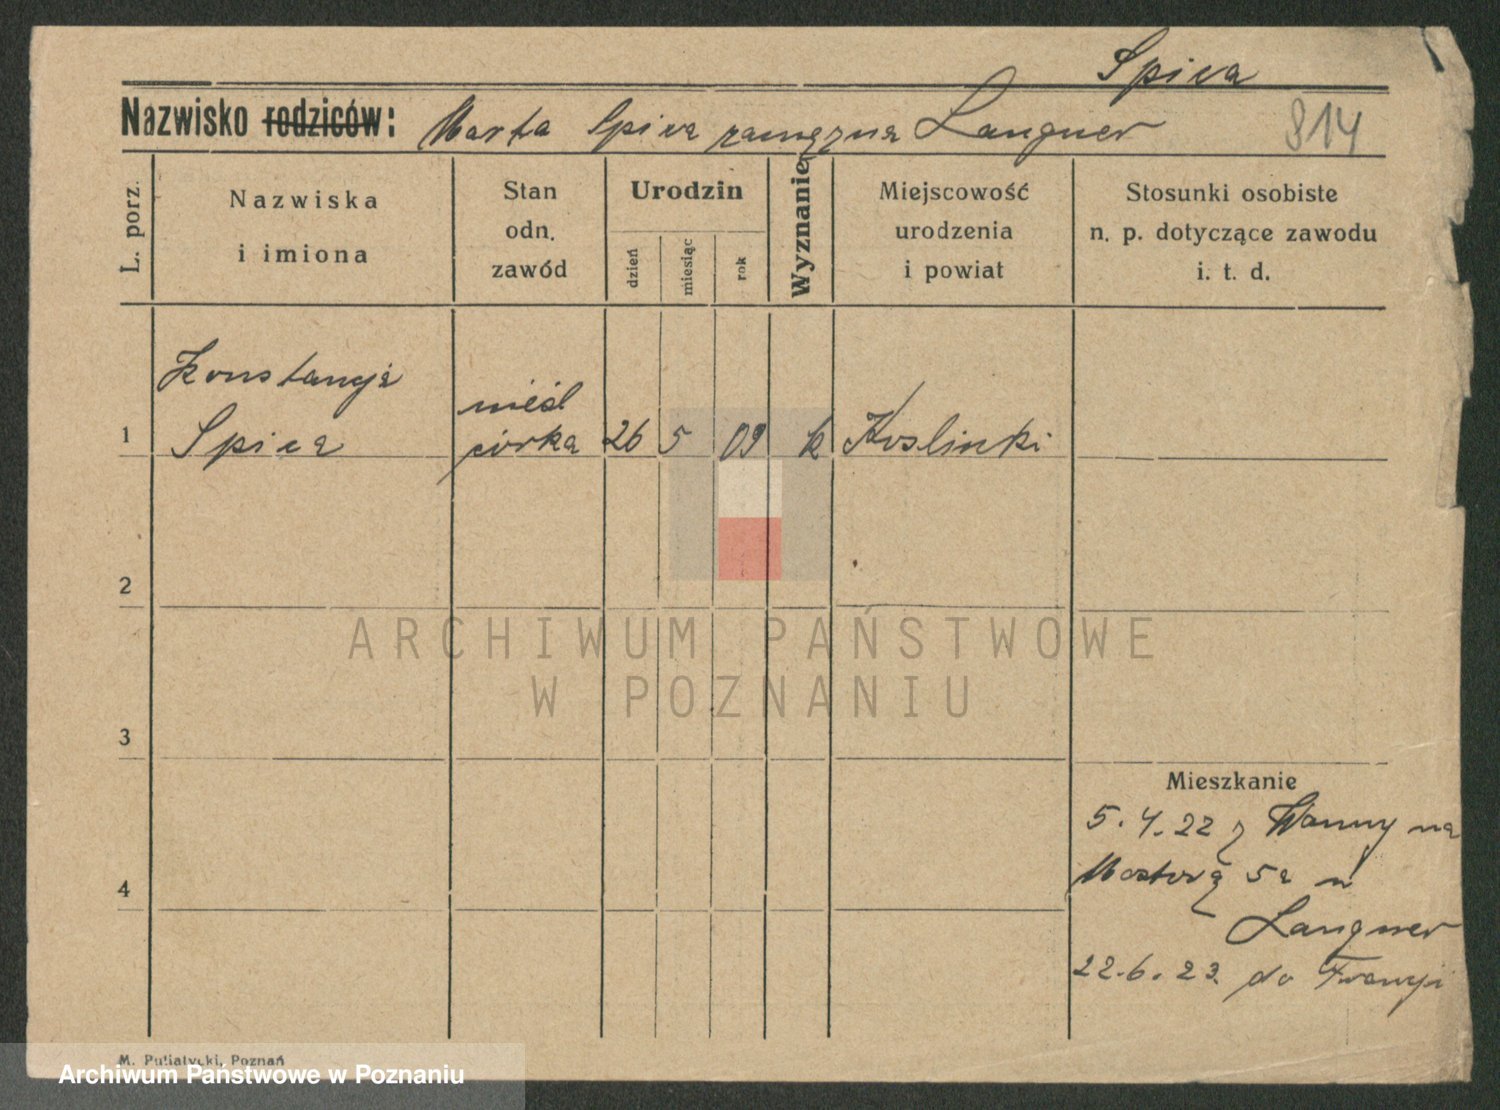 Spica
Nazwisko rodziców: Marta Spica zamężna Langner 814
L. porz.
Nazwiska
i imiona
Stan
odn.
zawód
Urodzin
dzień
miesiąc
rok
Wyznanie
Miejscowość
urodzenia
i powiat
Stosunki osobiste
n. p. dotyczące zawodu
i. t. d.
Konstancja
nieśl
1 Spica córka 26 5 09 k Koslinki
2
3
4
Mieszkanie
5.4.22 z Wanny na
Mostową 5a u
Langner
22.6.23. do Francji
M. Putiatycki, Poznań
ARCHIWUM PAŃSTWOWE
W POZNANIU
Archiwum Państwowe w Poznaniu